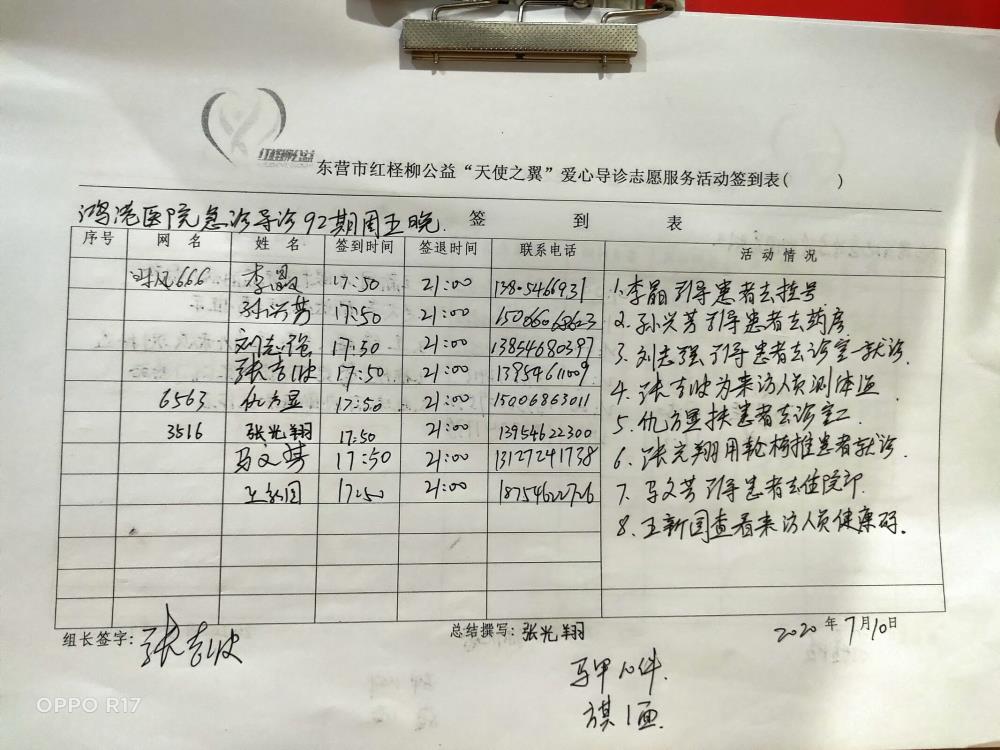 红柽柳公益
东营市红柽柳公益“天使之翼”爱心导诊志愿服务活动签到表( )
鸿港医院急诊导诊92期周五晚.
签 到 表
序号 网 名 姓 名 签到时间 签退时间 联系电话 活动情况
666 李晶 17:50 21:00 13805466931 1.李晶引导患者去挂号
孙兴芳 17:50 21:00 15066068623 2.孙兴芳引导患者去药房
刘志强 17:50 21:00 13854680397 3.刘志强引导患者去诊室一就诊.
张吉波 17:50 21:00 13954611009 4.张吉波为来访人员测体温
6563 仇方显 17:50 21:00 15006863011 5.仇方显扶患者去诊室二
3516 张光翔 17:50 21:00 13954622300 6.张光翔用轮椅推患者就诊.
马文芳 17:50 21:00 13127241738 7.马文芳引导患者去住院部.
王新国 17:50 21:00 18754622726 8.王新国查看来访人员健康码.
组长签字: 张吉波 总结撰写: 张光翔 2020年7月10日
马甲10件.
旗1面.
OPPO R17